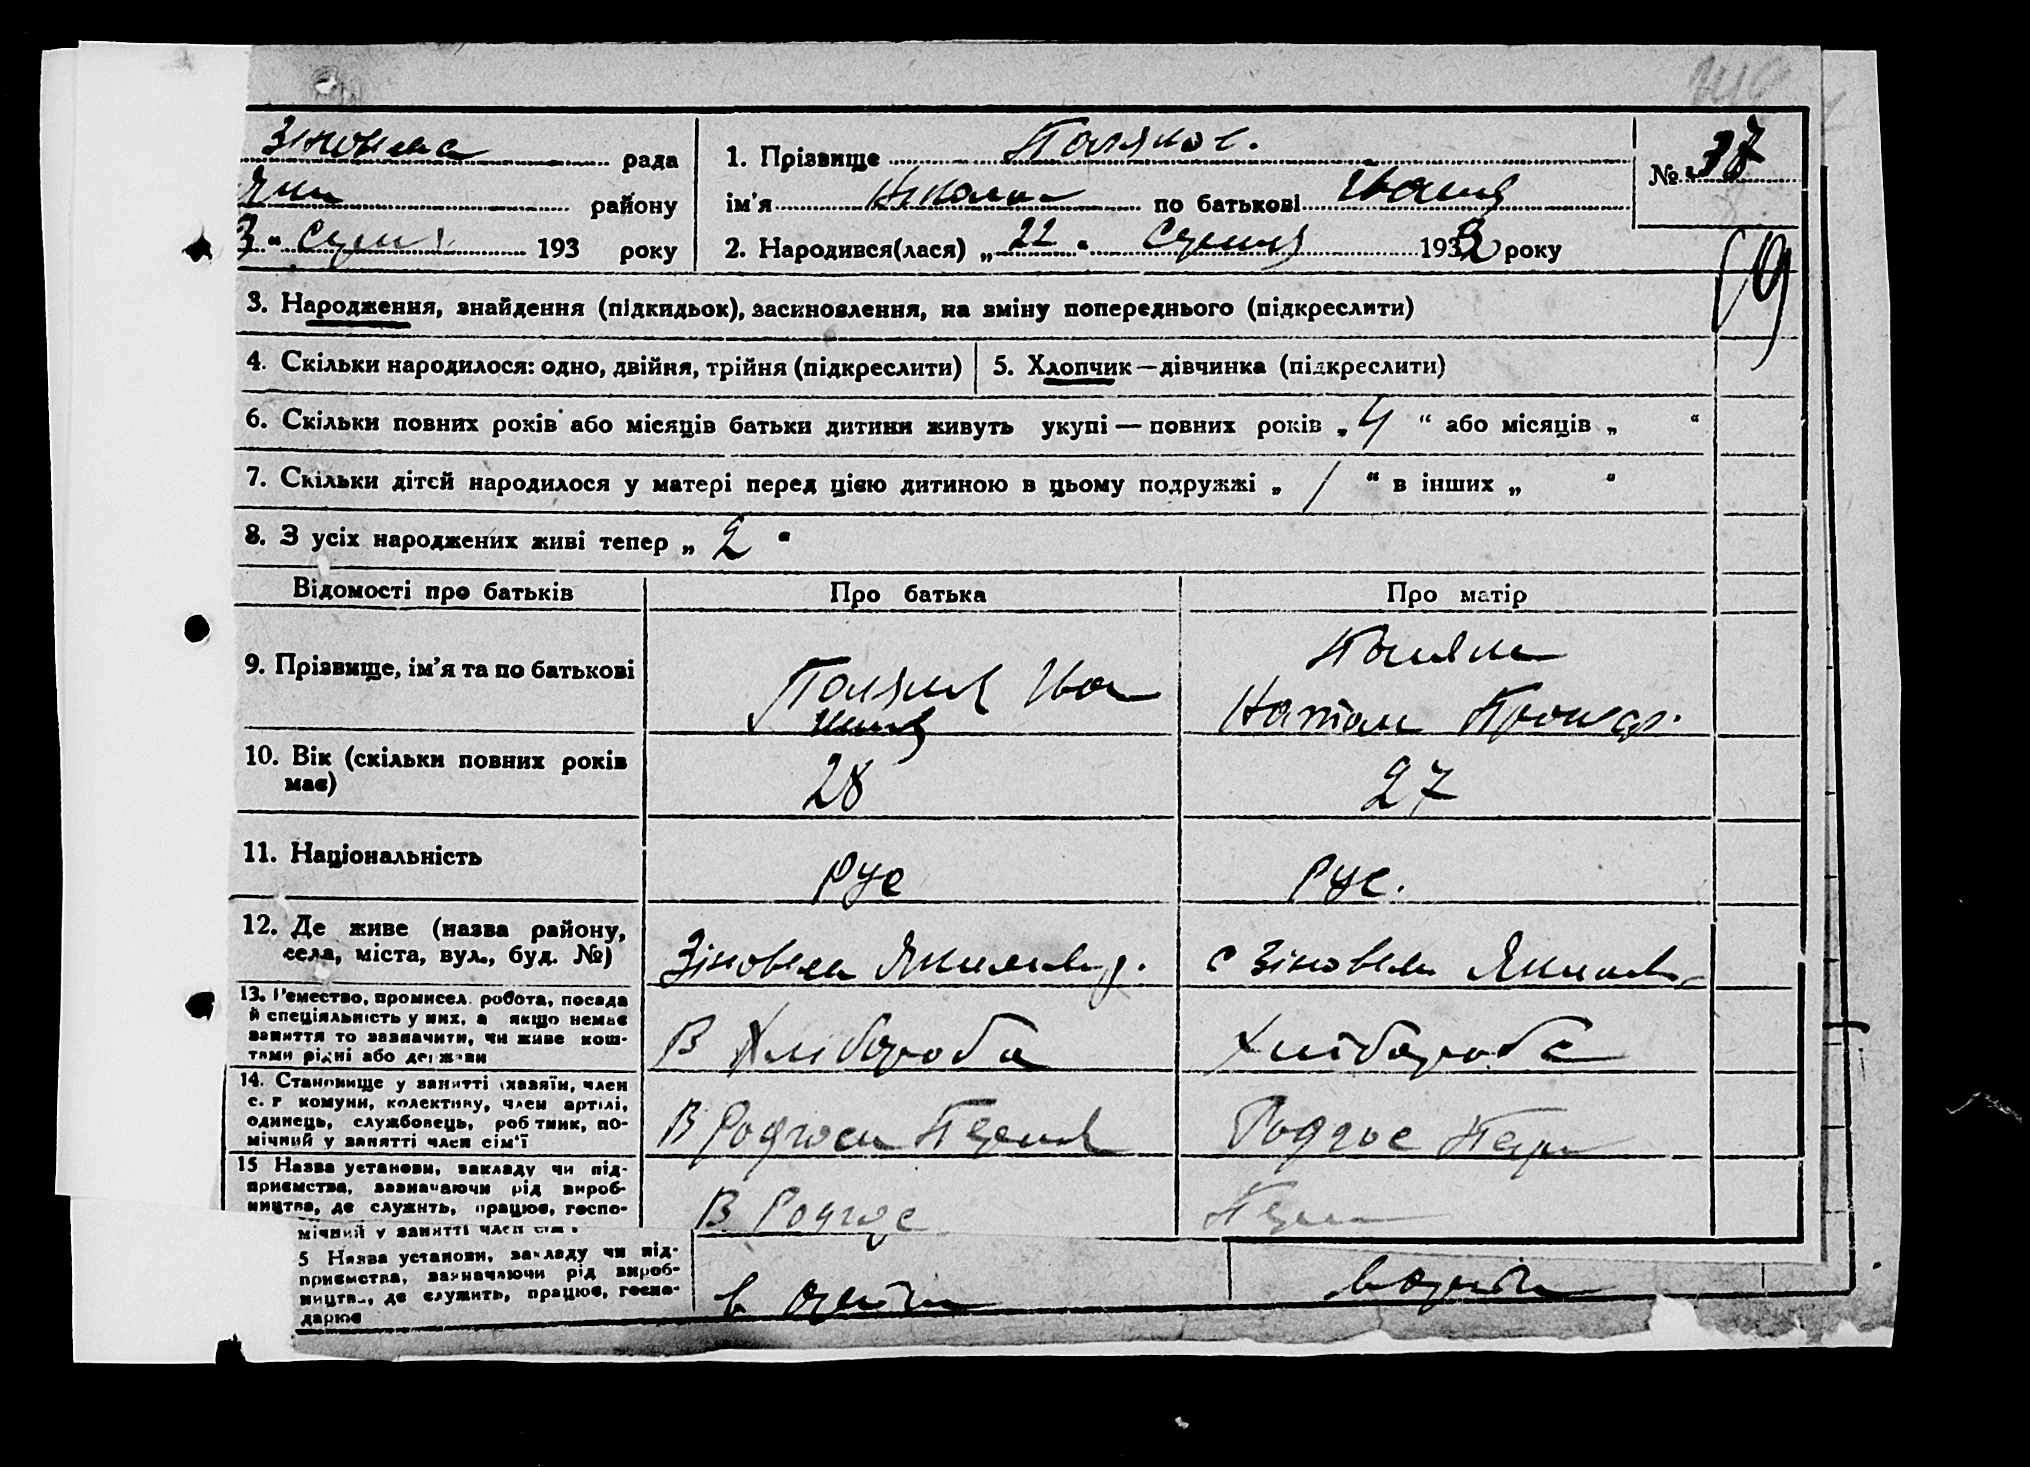 Зіновівка рада
району
3 " Січня 193 року
1. Прізвище Поляков.
ім'я Николай по батькові Іванів
2. Народився(лася) „ 22 " Січня 1932 року
№ 37
3. Народження, знайдення (підкидьок), засиновлення, на зміну попереднього (підкреслити)
4. Скільки народилося: одно, двійня, трійня (підкреслити)
5. Хлопчик—дівчинка (підкреслити)
6. Скільки повних років або місяців батьки дитини живуть укупі — повних років „ 4 " або місяців „ "
7. Скільки дітей народилося у матері перед цією дитиною в цьому подружжі „ 1 " в інших „ "
8. З усіх народжених живі тепер „ 2 "
Відомості про батьків
Про батька
Про матір
9. Прізвище, ім'я та по батькові
Поляков Іван
Поляков
Натал
10. Вік (скільки повних років
має)
28
27
11. Національність
рус
рус.
12. Де живе (назва району,
села, міста, вул., буд. №)
с
13. Ремество, промисел, робота, посада
й спеціяльність у них, а якщо немає
заняття то зазначити, чи живе кош-
тами рідні або держави
В Хлібороба
Хлібороба
14. Становище у занятті (хазяїн, член
с. г. комуни, колективу, член артілі,
одинець, службовець, робітник, по-
мічний у занятті член сім'ї
В
15 Назва установи, закладу чи під-
приємства, зазначаючи рід вироб-
ництва, де служить, працює, госпо-
В
мічний у занятті член сім'ї
5 Назва установи, закладу чи під-
приємства, зазначаючи рід вироб-
ництва, де служить, працює, госпо-
дарює
в